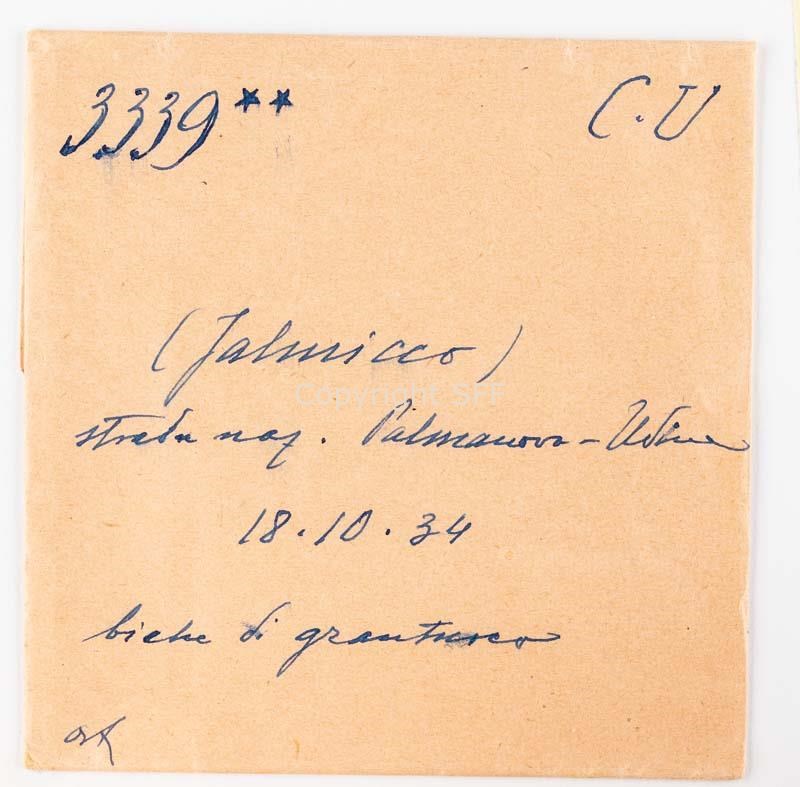 3339** C.U
(Jalmicco)
Copyright SFF
strada naz. Palmanova - Udine
18.10.34
biche di granturco